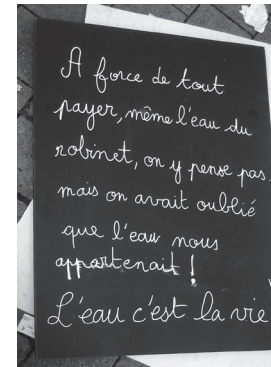 A force de tout
payer, même l'eau du
robinet, on y pense pas
mais on avait oublié
que l'eau nous
appartenait !
L'eau c'est la vie